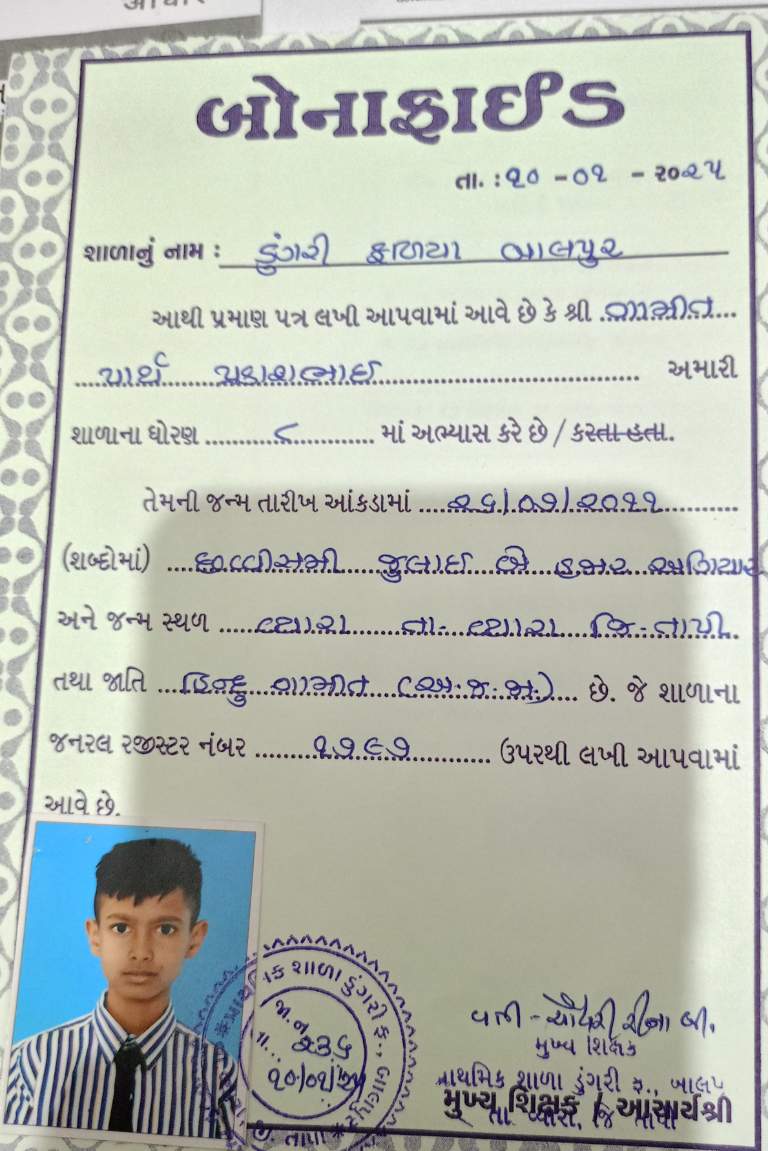 બોનાફાઈડ
તા. : ૧૦ - ૦૧ - ૨૦૨૫
શાળાનું નામ : ડુંગરી ફળિયા બાલપુર
આથી પ્રમાણ પત્ર લખી આપવામાં આવે છે કે શ્રી ગામીત
પાર્થ પ્રકાશભાઈ અમારી
શાળાના ધોરણ ૮ માં અભ્યાસ કરે છે / કરતા હતા.
તેમની જન્મ તારીખ આંકડામાં ૨૬/૦૭/૨૦૧૧
(શબ્દોમાં) છવ્વીસમી જુલાઈ બે હજાર અગિયાર
અને જન્મ સ્થળ વ્યારા તા- વ્યારા જિ-તાપી
તથા જાતિ હિન્દુ ગામીત (અ.જ.જા.) છે. જે શાળાના
જનરલ રજીસ્ટર નંબર ૧૭૯૭ ઉપરથી લખી આપવામાં
આવે છે.
શાળા ડુંગરી ફ., બાલપુર
જા.ન ૨૩૬
તા. ૧૦/૦૧/૨૫
વતી - ચૌધરી રીના બી.
મુખ્ય શિક્ષક
પ્રાથમિક શાળા ડુંગરી ફ., બાલપુ
મુખ્ય શિક્ષક / આચાર્યશ્રી
તા. વ્યારા, જિ તાપી